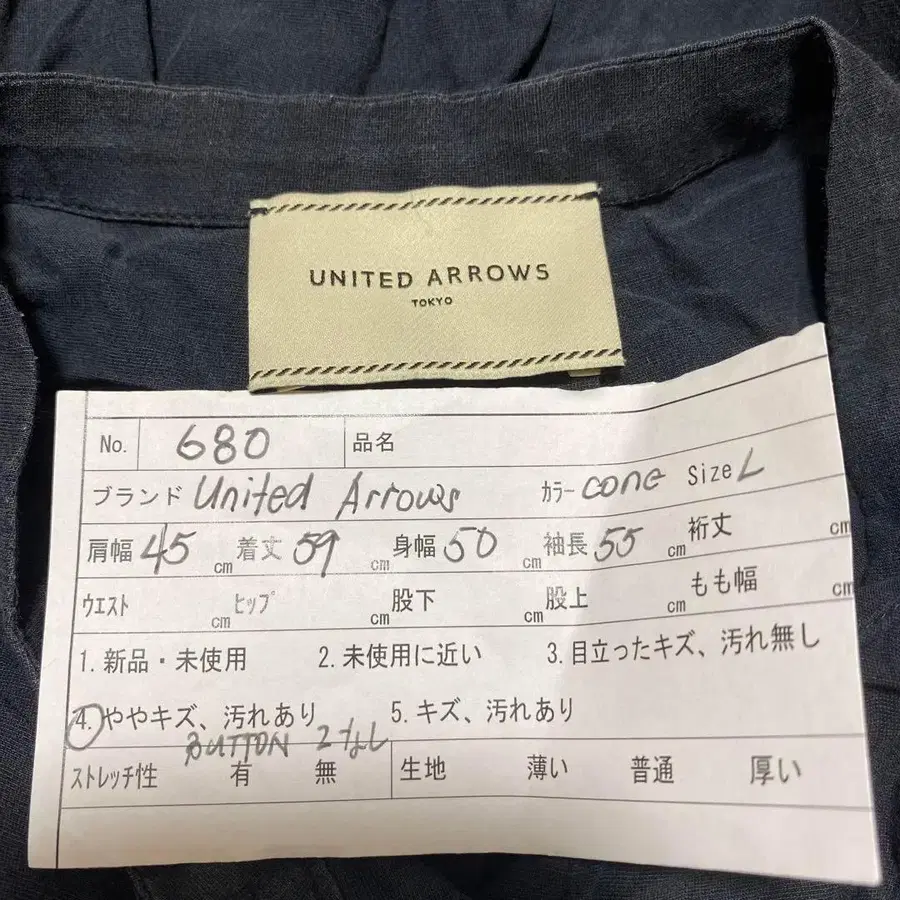 UNITED ARROWS
TOKYO
No. 680 品名
ブランド United Arrows カラー cone Size L
肩幅 45 cm 着丈 59 cm 身幅 50 cm 袖長 55 cm 裄丈 cm
ウエスト cm ヒップ cm 股下 cm 股上 cm もも幅 cm
1. 新品・未使用 2. 未使用に近い 3. 目立ったキズ、汚れ無し
4. ややキズ、汚れあり 5. キズ、汚れあり
BUTTON 2なし
ストレッチ性 有 無 生地 薄い 普通 厚い